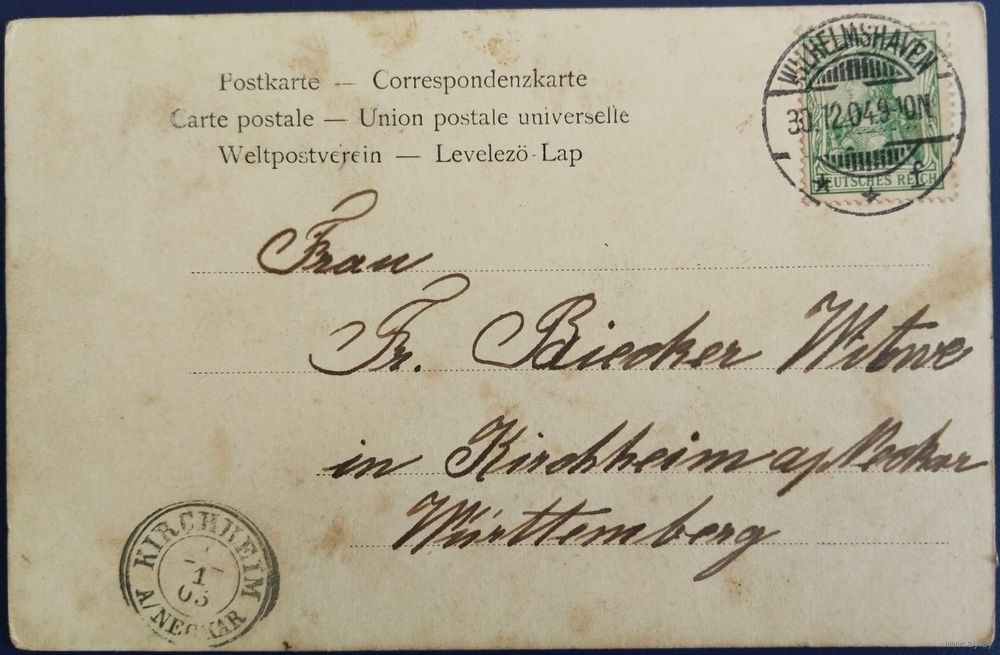 Postkarte — Correspondenzkarte
Carte postale — Union postale universelle
Weltpostverein — Levelezö-Lap
WILHELMSHAVEN
30.12.04.9-10N
* * f
DEUTSCHES REICH
Frau
Fr. Biecker Witwe
in Kirchheim a/Neckar
Württemberg
KIRCHHEIM
1
05
A/NECKAR